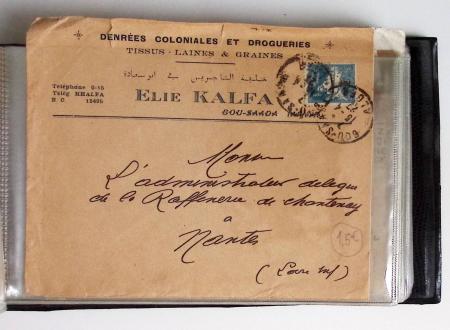 DENRÉES COLONIALES ET DROGUERIES
TISSUS - LAINES & GRAINES
خليفة التاجر بس في ابوسعادة
Téléphone 0-15
Télég KHALFA
R C 13405
ELIE KALFA
BOU-SAADA
Monsieur
L'administrateur délégué
de la Raffinerie de Chantenay
à
Nantes
(Loire Inf)
1,5€